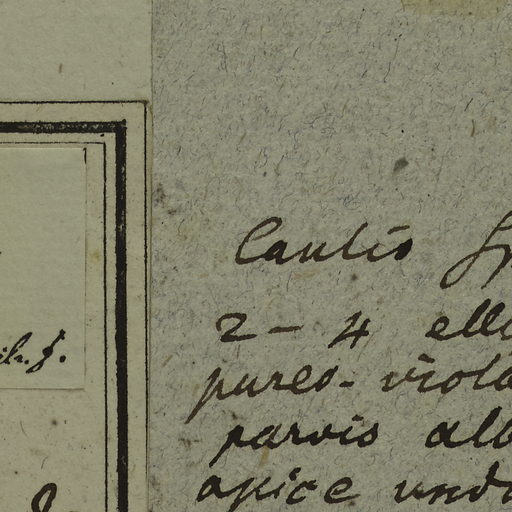 Caulis
2 – 4
pureo-viola
parvis alb
apice und